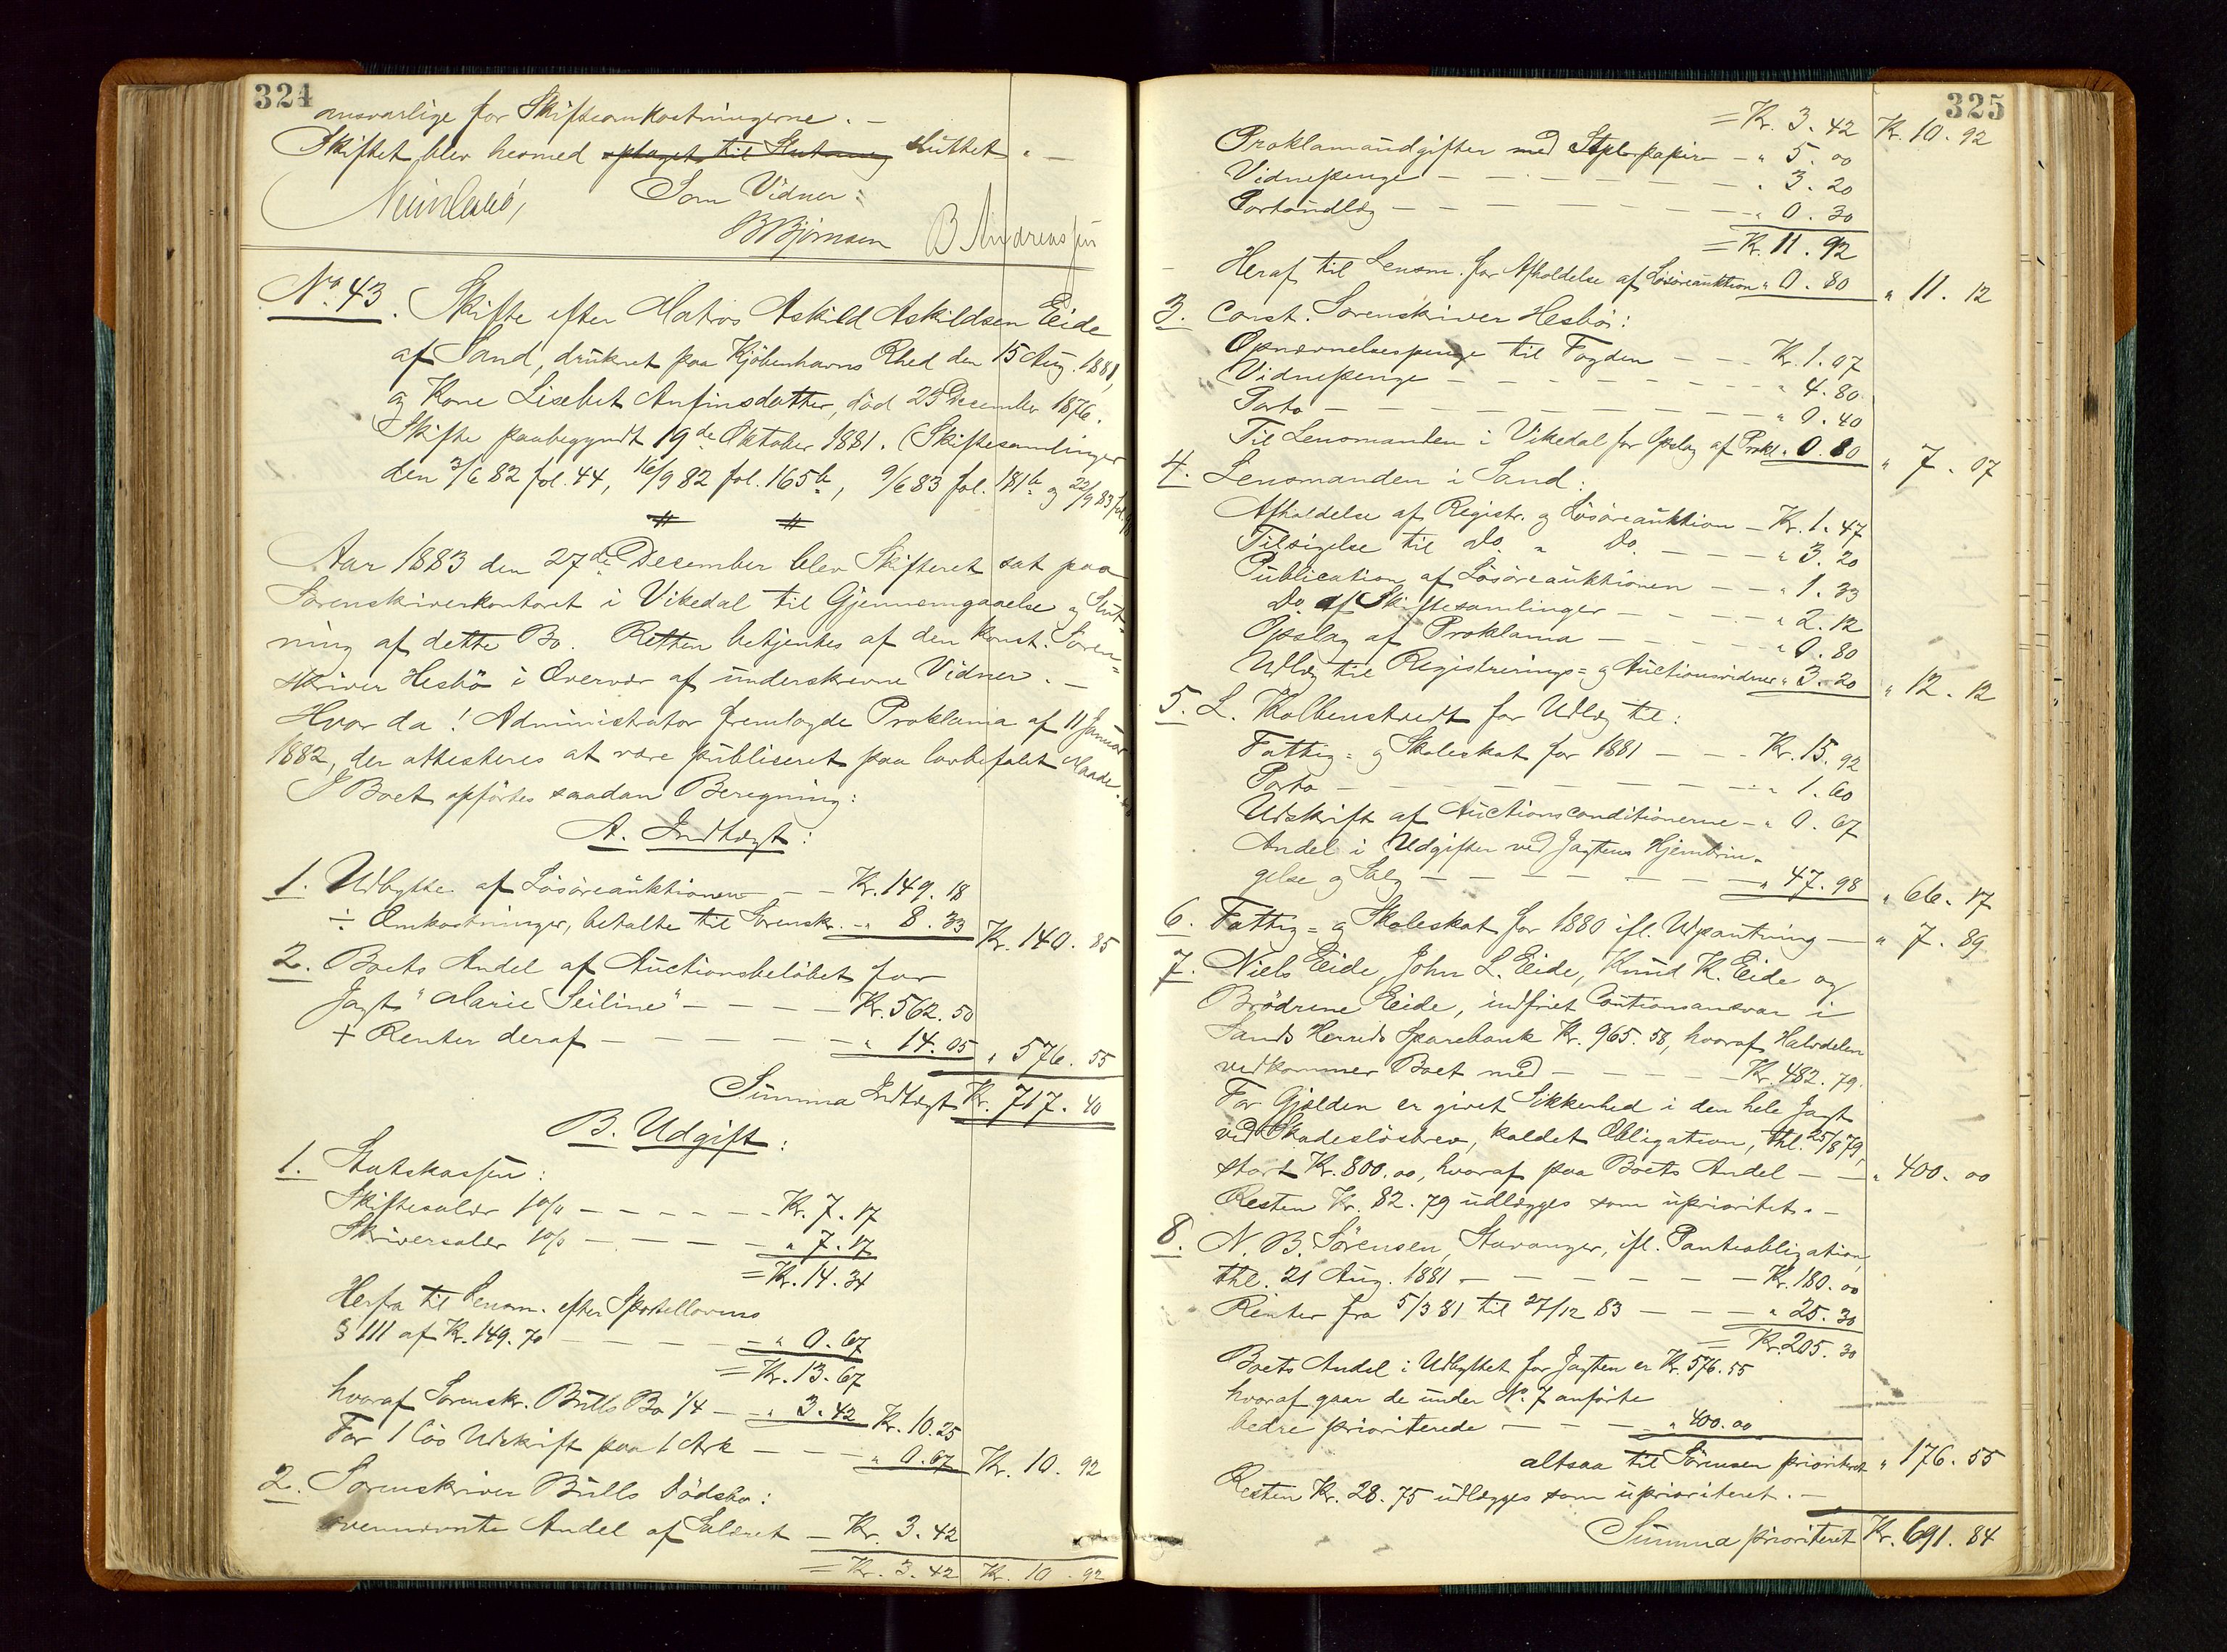 324
ansvarlige for Skifteomkostningerne. –
Skiftet blev hermed optaget til Slutning sluttet. –
Som Vidner:
BBjörnsen B Andreassen
No. 43. Skifte efter Matros Askild Askildsen Eide
af Sand, druknet paa Kjöbenhavns Rhed den 15 Aug. 1881,
og Kone Lisebet Anfinsdatter, död 25 December 1876.
Skifte paabegyndt 19de Oktober 1881. (Skiftesamlinger
den 3/6 82 fol. 44, 16/9 82 fol. 165b, 9/6 83 fol. 181b og 22/9 83 fol.
Aar 1883 den 27de December blev Skifteret sat paa
Sorenskriverkontoret i Vikedal til Gjennemgaaelse og Slut-
ning af dette Bo. Retten betjentes af den konst. Soren-
skriver Hesbö i Overvær af underskrevne Vidner. –
Hvor da! Administrator fremlagde Proklama af 11 Januar
1882, der attesteres at være publiseret paa lovbefalet Maade.
I Boet opförtes saadan Beregning:
A. Indtægt:
1. Udbytte af Lösöreauktionen – – Kr. 149. 18
÷ Omkostninger, betalte til Sorenskr. – „ 8. 33 Kr. 140. 85
2. Boets Andel af Auctionsbelöbet for
Jagt "Marie Seiline" – – – – Kr. 562. 50
+ Renter deraf – – – – – – „ 14. 05 „ 576. 55
Summa Indtægt Kr. 717. 40
B. Udgift:
1. Statskassen:
Skiftesalær 1% – – – – – – Kr. 7. 17
Skriversalær 1% – – – – – „ 7. 17
= Kr. 14. 34
Herfra til Lensm. efter Sportellovens
§ 111 af Kr. 149. 70 – – – – „ 0. 67
= Kr. 13. 67
hvoraf Sorenskr. Bulls Bo 1/4 – – „ 3. 42 Kr. 10. 25
For 1 lös Udskrift paa 1 Ark – – – „ 0. 67 Kr. 10. 92
2. Sorenskriver Bulls Dödsbo:
ovennævnte Andel af Salæret – Kr. 3. 42
= Kr. 3. 42 Kr. 10. 92
325
= Kr. 3. 42 Kr. 10. 92
Proklamaudgifter med Stplpapir – „ 5. 00
Vidnepenge – – – – – – – „ 3. 20
Portoudlæg – – – – – – – – „ 0. 30
= Kr. 11. 92
Heraf til Lensm. for Afholdelse af Lösöreauktion „ 0. 80 „ 11. 12
3. Const. Sorenskriver Hesbö:
Opnævnelsespenge til Fogden – – Kr. 1. 07
Vidnepenge – – – – – – – – „ 4. 80
Porto – – – – – – – – – – „ 0. 40
Til Lensmanden i Vikedal for Opslag af Prokl. „ 0. 80 „ 7. 07
4. Lensmanden i Sand:
Afholdelse af Registr. og Lösöreauktion – Kr. 1. 47
Tilsigelse til Do. „ Do. – – – – „ 3. 20
Publication af Lösöreauktionen – – „ 1. 33
Do. af Skiftesamlinger – – – – „ 2. 12
Opslag af Proklama – – – – – „ 0. 80
Udlæg til Registrerings- og Auctionsvidner „ 3. 20 „ 12. 12
5. L. Kolbenstvedt for Udlæg til:
Fattig- og Skoleskat for 1881 – – – Kr. 15. 92
Porto – – – – – – – – – – „ 1. 60
Udskrift af Auctionsconditionerne – „ 0. 67
Andel i Udgifter ved Jagtens Hjembrin-
gelse og Salg – – – – – – – „ 47. 98 „ 66. 17
6. Fattig- og Skoleskat for 1880 ifl. Udpantning – „ 7. 89
7. Niels Eide, John L. Eide, Knud K. Eide og
Brödrene Eide, indfriet Cautionsansvar i
Sands Herreds Sparebank Kr. 965. 58, hvoraf Halvdelen
vedkommer Boet med – – – – – Kr. 482. 79.
For Gjælden er givet Sikkerhed i den hele Jagt
ved Skadeslösbrev, kaldet Obligation, thl. 25/8 79,
stort Kr. 800. 00, hvoraf paa Boets Andel – – „ 400. 00
Resten Kr. 82. 79 udlægges som uprioritet. –
8. N. B. Sörensen, Stavanger, ifl. Panteobligation
thl. 21 Aug. 1881 – – – – – – – Kr. 180. 00
Renter fra 5/3 81 til 27/12 83 – – – „ 25. 30
= Kr. 205. 30
Boets Andel i Udbyttet for Jagten er Kr. 576. 55
hvoraf gaar de under No. 7 anförte
bedre prioriterede – – – – „ 400. 00
altsaa til Sörensen prioriteret „ 176. 55
Resten Kr. 28. 75 udlægges som uprioriteret. –
Summa prioriteret Kr. 691. 84